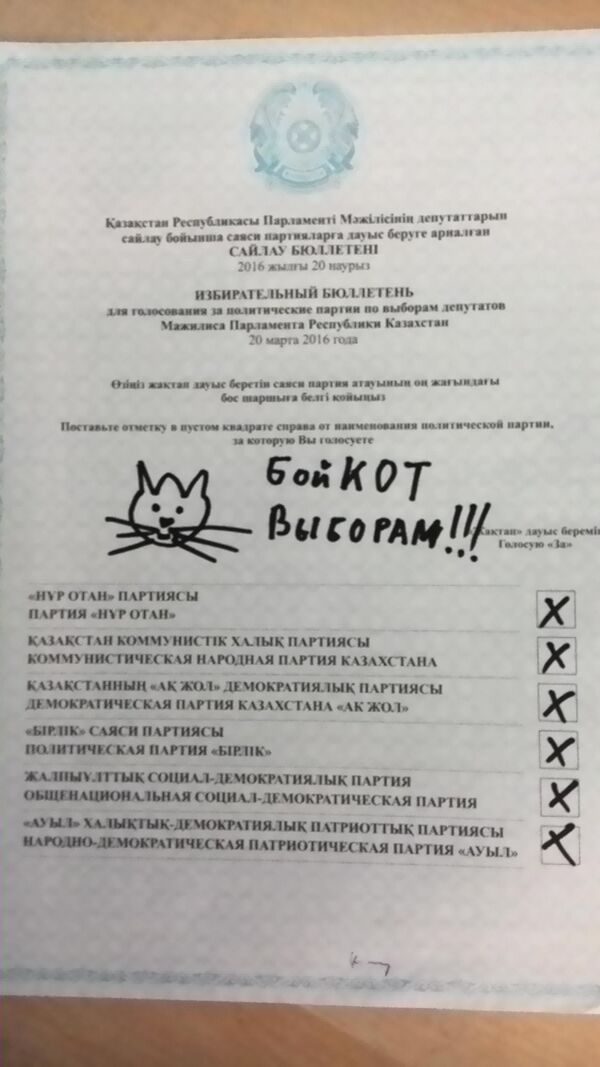 Қазақстан Республикасы Парламенті Мәжілісінің депутаттарын
сайлау бойынша саяси партияларға дауыс беруге арналған
САЙЛАУ БЮЛЛЕТЕНІ
2016 жылғы 20 наурыз
ИЗБИРАТЕЛЬНЫЙ БЮЛЛЕТЕНЬ
для голосования за политические партии по выборам депутатов
Мажилиса Парламента Республики Казахстан
20 марта 2016 года
Өзіңіз жақтап дауыс беретін саяси партия атауының оң жағындағы
бос шаршыға белгі қойыңыз
Поставьте отметку в пустом квадрате справа от наименования политической партии,
за которую Вы голосуете
БойКОТ
ВЫБОРАМ!!!
дауыс беремін
Голосую «За»
«НҰР ОТАН» ПАРТИЯСЫ
ПАРТИЯ «НҰР ОТАН»
ҚАЗАҚСТАН КОММУНИСТІК ХАЛЫҚ ПАРТИЯСЫ
КОММУНИСТИЧЕСКАЯ НАРОДНАЯ ПАРТИЯ КАЗАХСТАНА
ҚАЗАҚСТАННЫҢ «АҚ ЖОЛ» ДЕМОКРАТИЯЛЫҚ ПАРТИЯСЫ
ДЕМОКРАТИЧЕСКАЯ ПАРТИЯ КАЗАХСТАНА «АК ЖОЛ»
«БІРЛІК» САЯСИ ПАРТИЯСЫ
ПОЛИТИЧЕСКАЯ ПАРТИЯ «БІРЛІК»
ЖАЛПЫҰЛТТЫҚ СОЦИАЛ-ДЕМОКРАТИЯЛЫҚ ПАРТИЯ
ОБЩЕНАЦИОНАЛЬНАЯ СОЦИАЛ-ДЕМОКРАТИЧЕСКАЯ ПАРТИЯ
«АУЫЛ» ХАЛЫҚТЫҚ-ДЕМОКРАТИЯЛЫҚ ПАТРИОТТЫҚ ПАРТИЯСЫ
НАРОДНО-ДЕМОКРАТИЧЕСКАЯ ПАТРИОТИЧЕСКАЯ ПАРТИЯ «АУЫЛ»